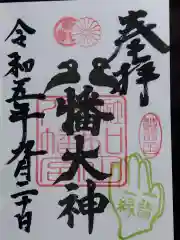 奉拝
八幡大神
令和五年九月二十日